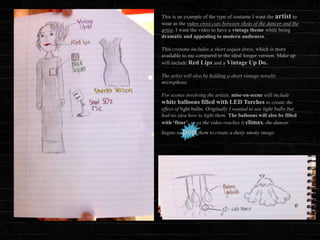 Vintage
Updo
Red lips
Black
Sequin
Shorter Version
Steel 50's
Mic
This is an example of the type of costume I want the artist to
wear as the video cross cuts between shots of the dancer and the
artist. I want the video to have a vintage theme while being
dramatic and appealing to modern audiences.
This costume includes a short sequin dress, which is more
available to me compared to the ideal longer version. Make up
will include Red Lips and a Vintage Up Do.
The artist will also be holding a short vintage novelty
microphone.
For scenes involving the artists, mise-en-scene will include
white balloons filled with LED Torches to create the
effect of light bulbs. Originally I wanted to use light bulbs but
had no idea how to light them. The balloons will also be filled
with 'flour', so as the video reaches it climax, the dancer
begins to them to create a dusty smoke image.
LED TORCH